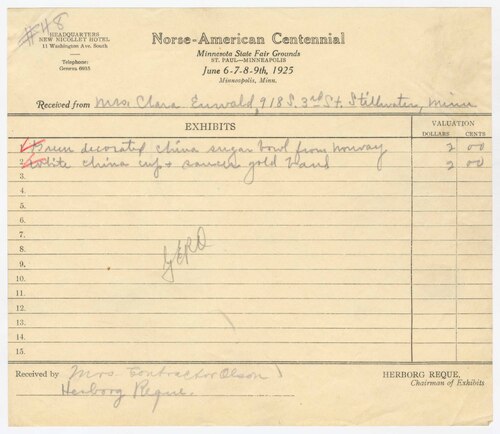 #48
HEADQUARTERS
NEW NICOLLET HOTEL
11 Washington Ave. South
Telephone:
Geneva 6035
Norse-American Centennial
Minnesota State Fair Grounds
ST. PAUL—MINNEAPOLIS
June 6-7-8-9th, 1925
Minneapolis, Minn.
Received from Mrs. Clara 918 S. 3rd St. Stillwater, Minn
EXHIBITS
VALUATION
DOLLARS CENTS
1. decorated china sugar bowl from Norway 2 00
2. White china cup + saucer gold band 2 00
3.
4.
5.
6.
7.
8.
9.
10.
11.
12.
13.
14.
15.
Received by Mrs Contractor Olson
Herborg Reque.
HERBORG REQUE,
Chairman of Exhibits